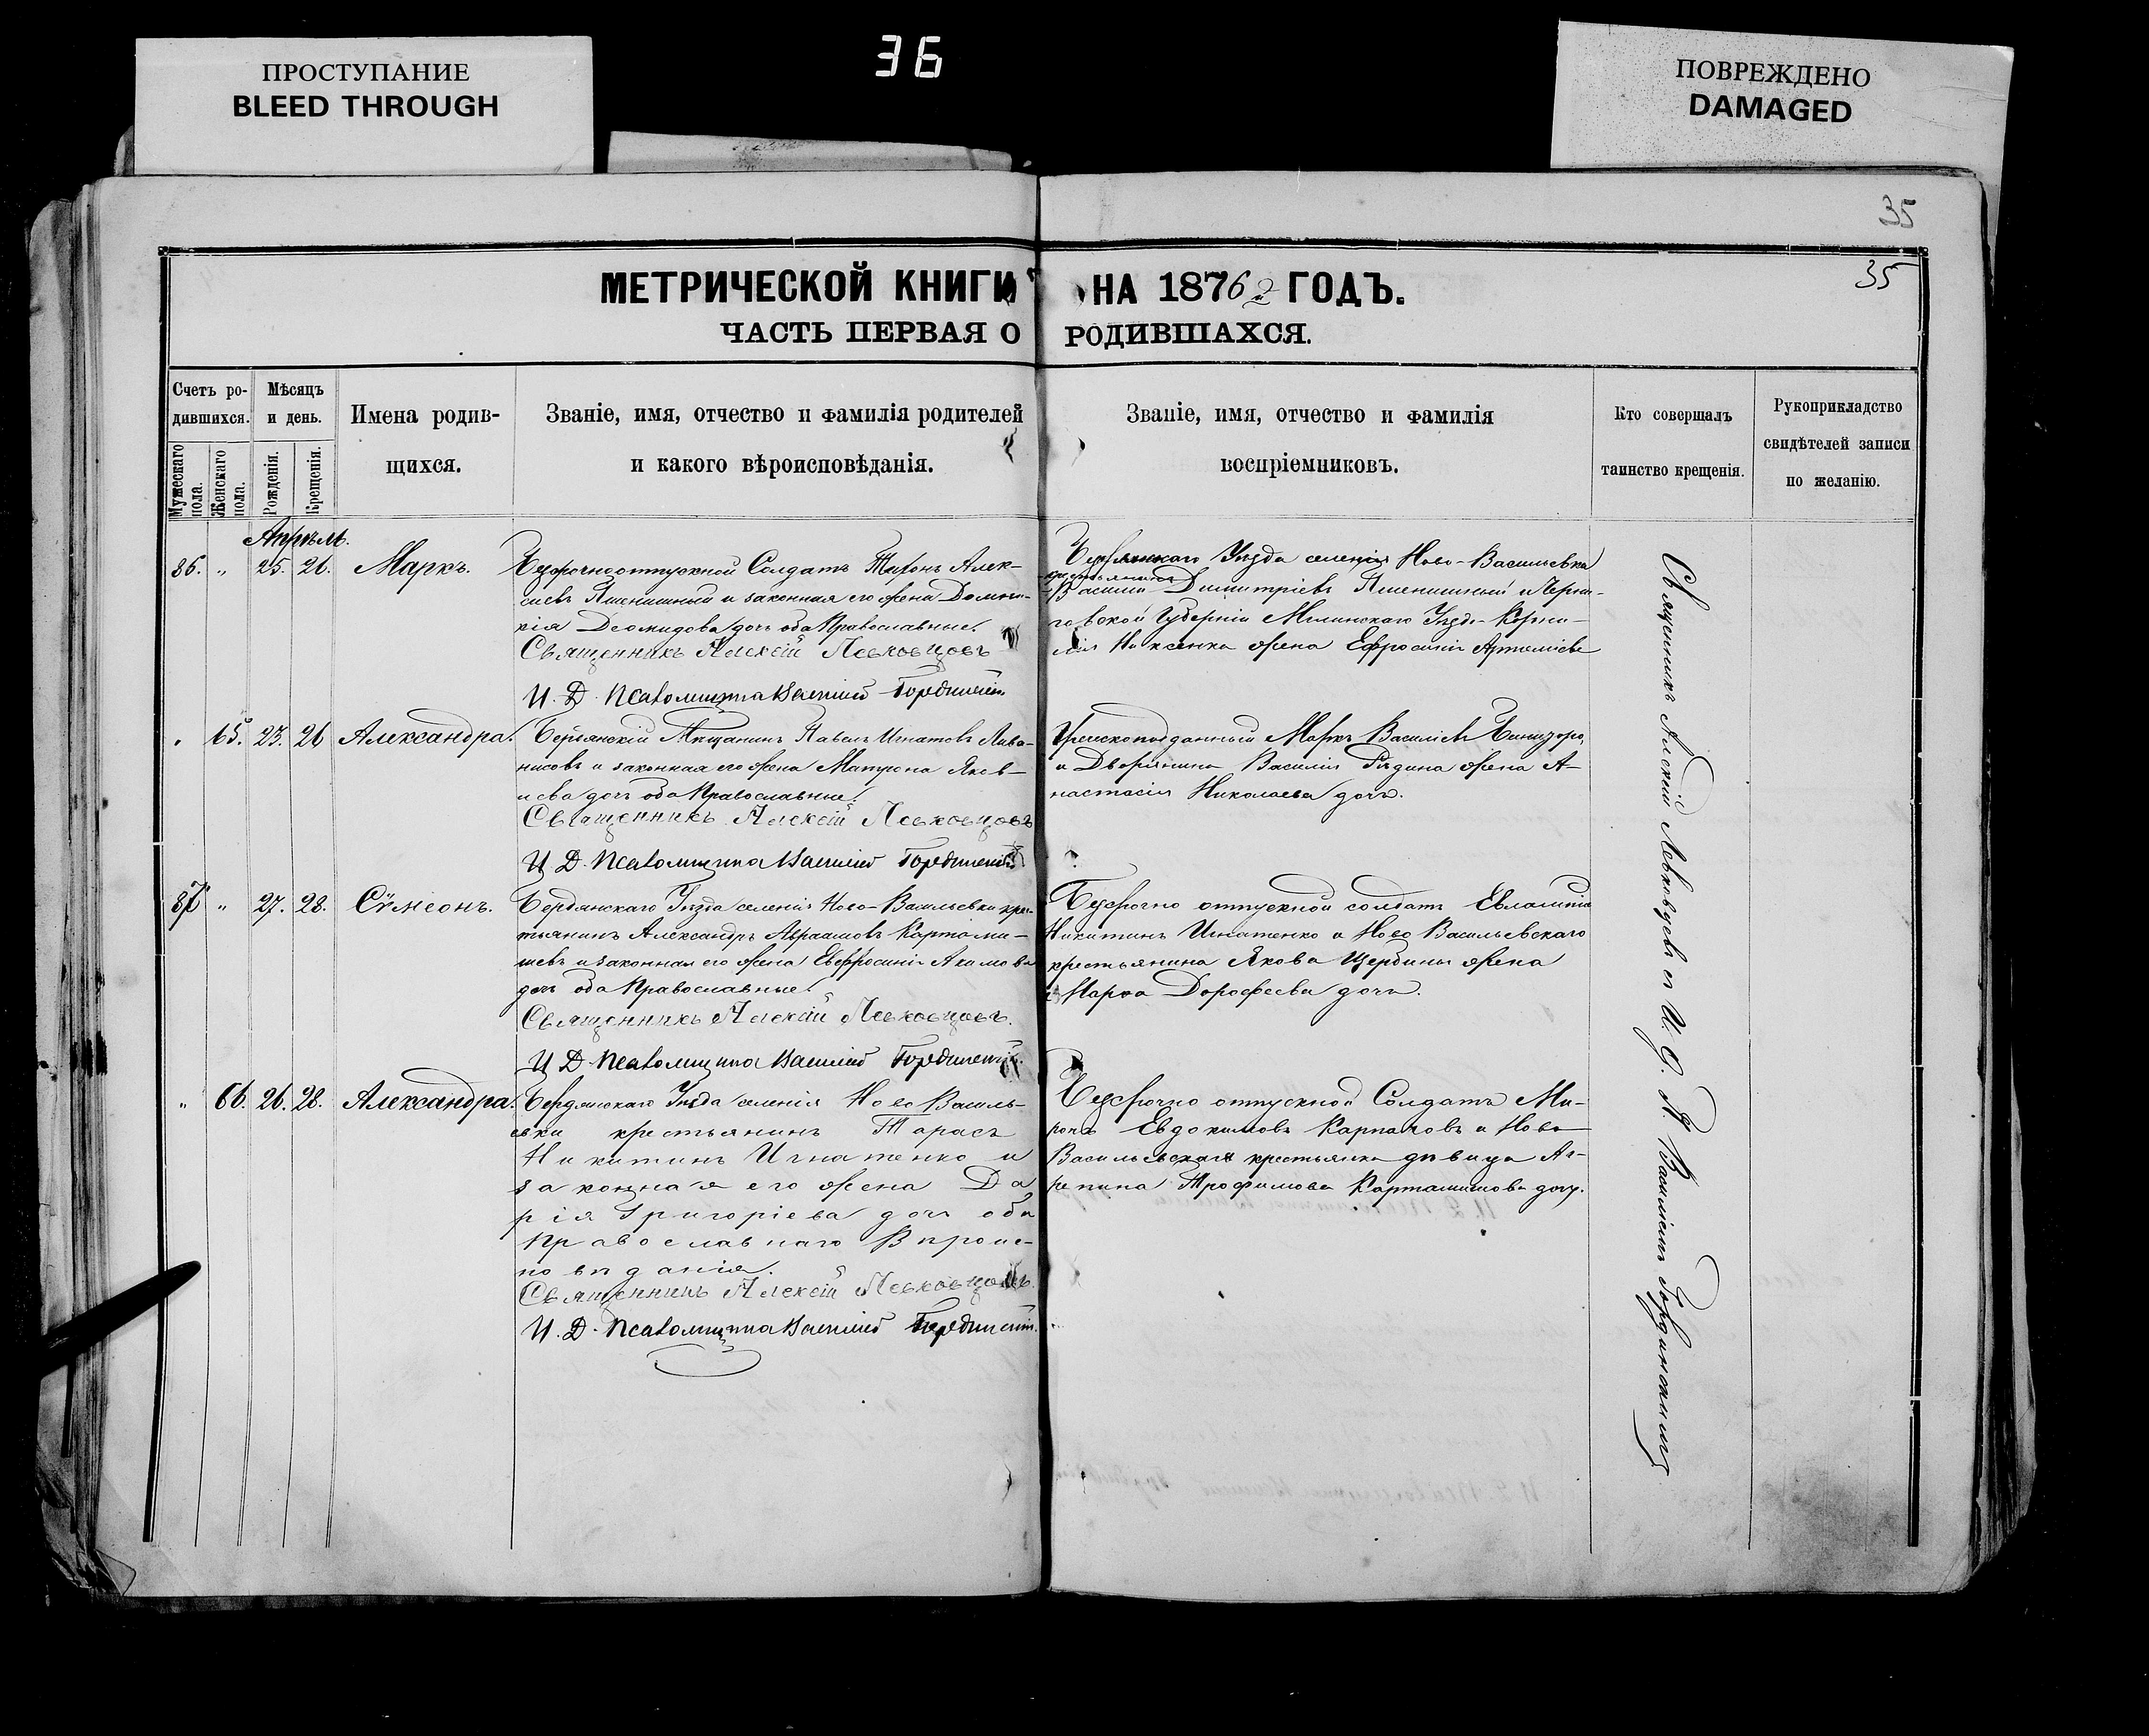 ПРОСТУПАНИЕ
BLEED THROUGH
36
ПОВРЕЖДЕНО
DAMAGED
35
35
МЕТРИЧЕСКОЙ КНИГИ НА 1876 ГОДЪ.
ЧАСТЬ ПЕРВАЯ О РОДИВШАХСЯ.
Счетъ ро-
дившихся.
Мужескаго
пола.
Женскаго
пола.
Мѣсяцъ
и день.
Рожденія.
Крещенія.
Имена родив-
щихся.
Званіе, имя, отчество и фамилія родителей
и какого вѣроисповѣданія.
Званіе, имя, отчество и фамилія
воспріемниковъ.
Кто совершалъ
таинство крещенія.
Рукоприкладство
свидѣтелей записи
по желанію.
Апрѣль.
86. " 25. 26. Маркъ.
Безсрочноотпускной Солдатъ Тихонъ Алек-
сіевъ Пшеничный и законная его жена Домни-
кія Деомидова дочь оба Православные.
Священникъ Алексій Левковцовъ
И. Д. Псаломщика Василий
Бердянскаго Уѣзда селенія Ново-Васильевки
крестьянинъ
Василий Димитріевъ Пшеничный и Черни-
говской Губерніи Мглинскаго Уѣзда Корни-
лія жена Ефросинія Артеміева
" 65. 23. 26 Александра.
Бердянскій Мѣщанинъ Павелъ Игнатовъ
и законная его жена Матрона Яков-
лева дочь оба Православные.
Священникъ Алексій Левковцовъ
И. Д. Псаломщика Василий
Греческоподданный Маркъ Василіевъ
и Дворянина Василія жена А-
настасія Николаева дочь.
87 " 27. 28. Сѵмеонъ.
Бердянскаго Уѣзда селенія Ново-Васильевки крес-
тьянинъ Александръ Авраамовъ Картами-
шевъ и законная его жена Евфросинія Акимова
дочь оба Православные.
Священникъ Алексій Левковцовъ.
И. Д. Псаломщика Василий
Безсрочно отпускной солдатъ Евлампій
Никитинъ Игнатенко и Ново Васильевскаго
крестьянина Якова Щербины жена
Марѳа Дорофеева дочь.
" 66. 26. 28. Александра.
Бердянскаго Уѣзда селенія Ново Василь-
евки крестьянинъ Тарасъ
Никитинъ Игнатенко и
законная его жена Да
рія Григоріева дочь оба
Православнаго Вѣроис-
повѣданія.
Священникъ Алексій Левковцовъ.
И. Д. Псаломщика Василий
Безсрочно отпускной Солдатъ Ми-
ронъ Евдокимовъ Карпачовъ и Ново
Васильевская крестьянка дѣвица Аг-
репина Трофимова Картамишова дочь.
Священникъ Алексій Левковцевъ съ И. Д. П. Василіемъ